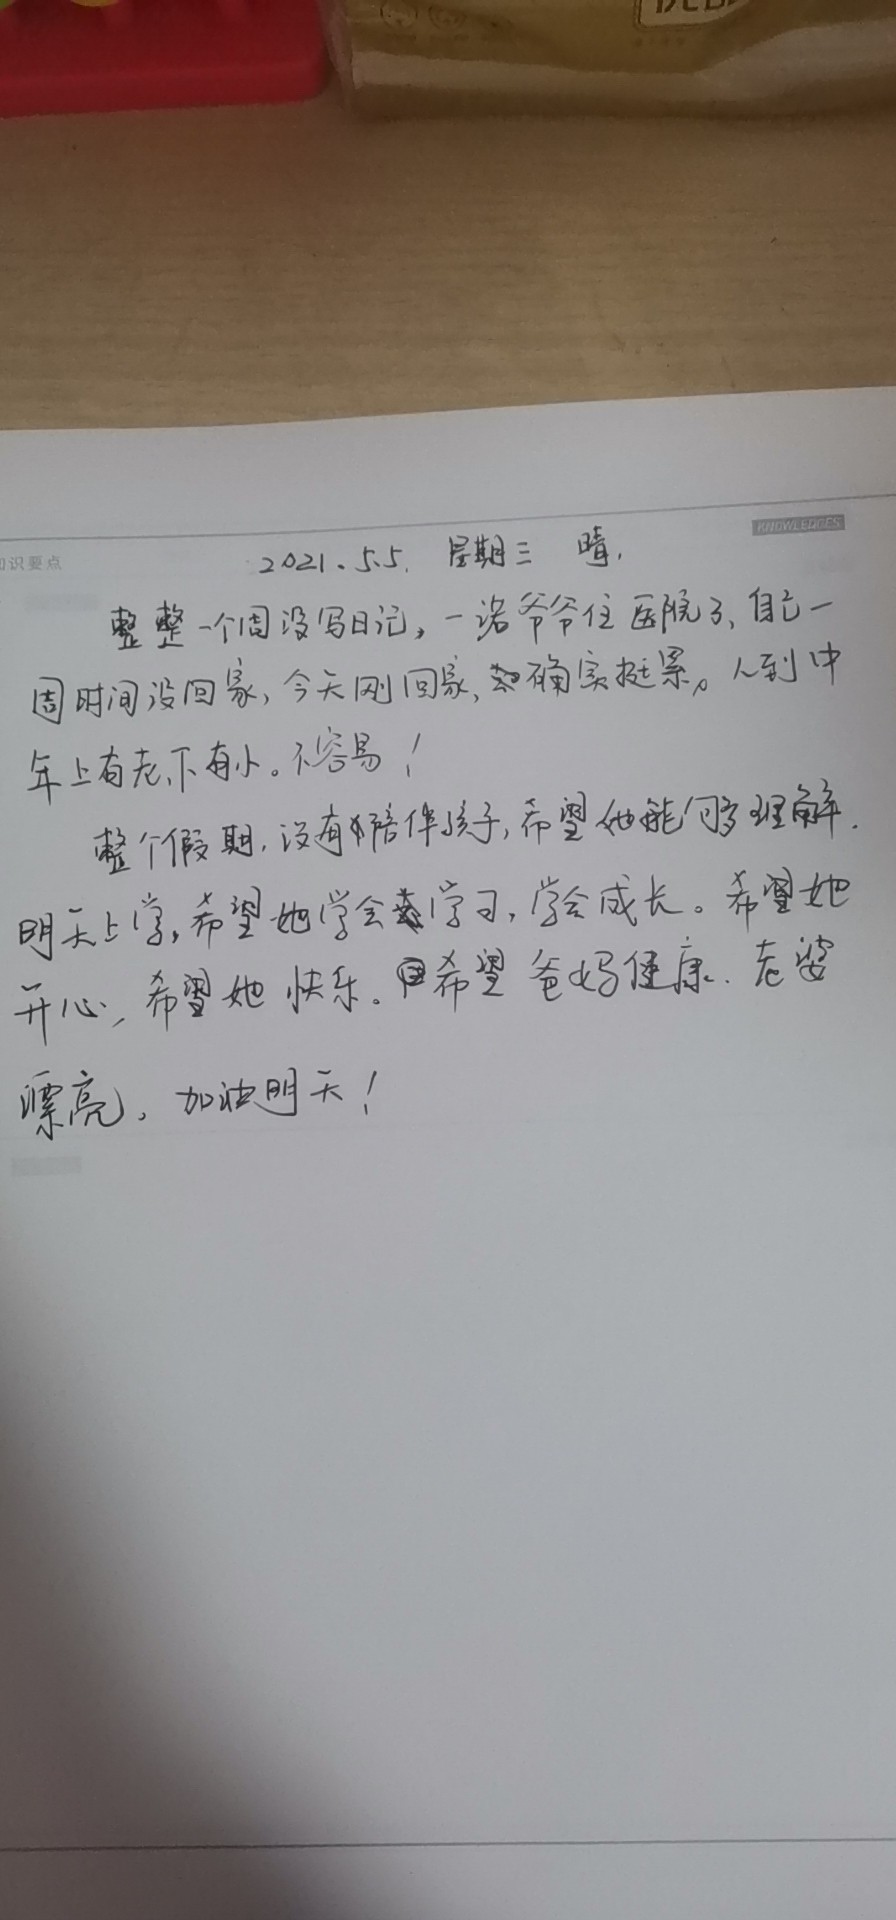 KNOWLEDGES
知识要点
2021.5.5. 星期三 晴.
整整一个周没写日记, 一诺爷爷住医院了, 自己一
周时间没回家, 今天刚回家, 确实挺累。人到中
年上有老、下有小。不容易!
整个假期, 没有陪伴孩子, 希望她能够理解.
明天上学, 希望她学会学习, 学会成长。希望她
开心, 希望她快乐。希望爸妈健康. 老婆
漂亮, 加油明天!